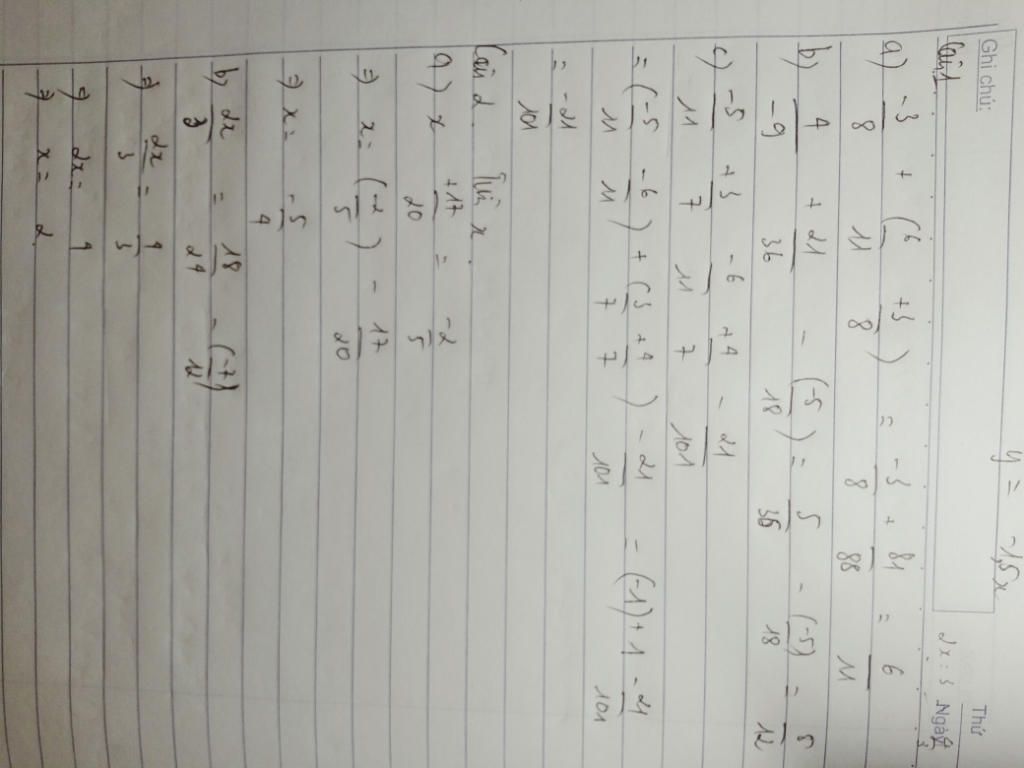 y = -1,5x
Ghi chú:
Thứ
2x : 3 Ngày
Câu 1
a) -3/8 + (6/11 + 3/8) = -3/8 + 81/88 = 6/11
b) 4/-9 + 21/36 - (-5/18) = 5/36 - (-5)/18 = 5/12
c) -5/11 + 3/7 - 6/11 + 4/7 - 21/101
= (-5/11 - 6/11) + (3/7 + 4/7) - 21/101 = (-1) + 1 - 21/101
= -21/101
Câu 2. Tìm x.
a) x + 17/20 = -2/5
⇒ x = (-2/5) - 17/20
⇒ x = -5/4
b) 2x/3 = 18/24 - (-7/12)
⇒ 2x/3 = 4/3
⇒ 2x = 4
⇒ x = 2